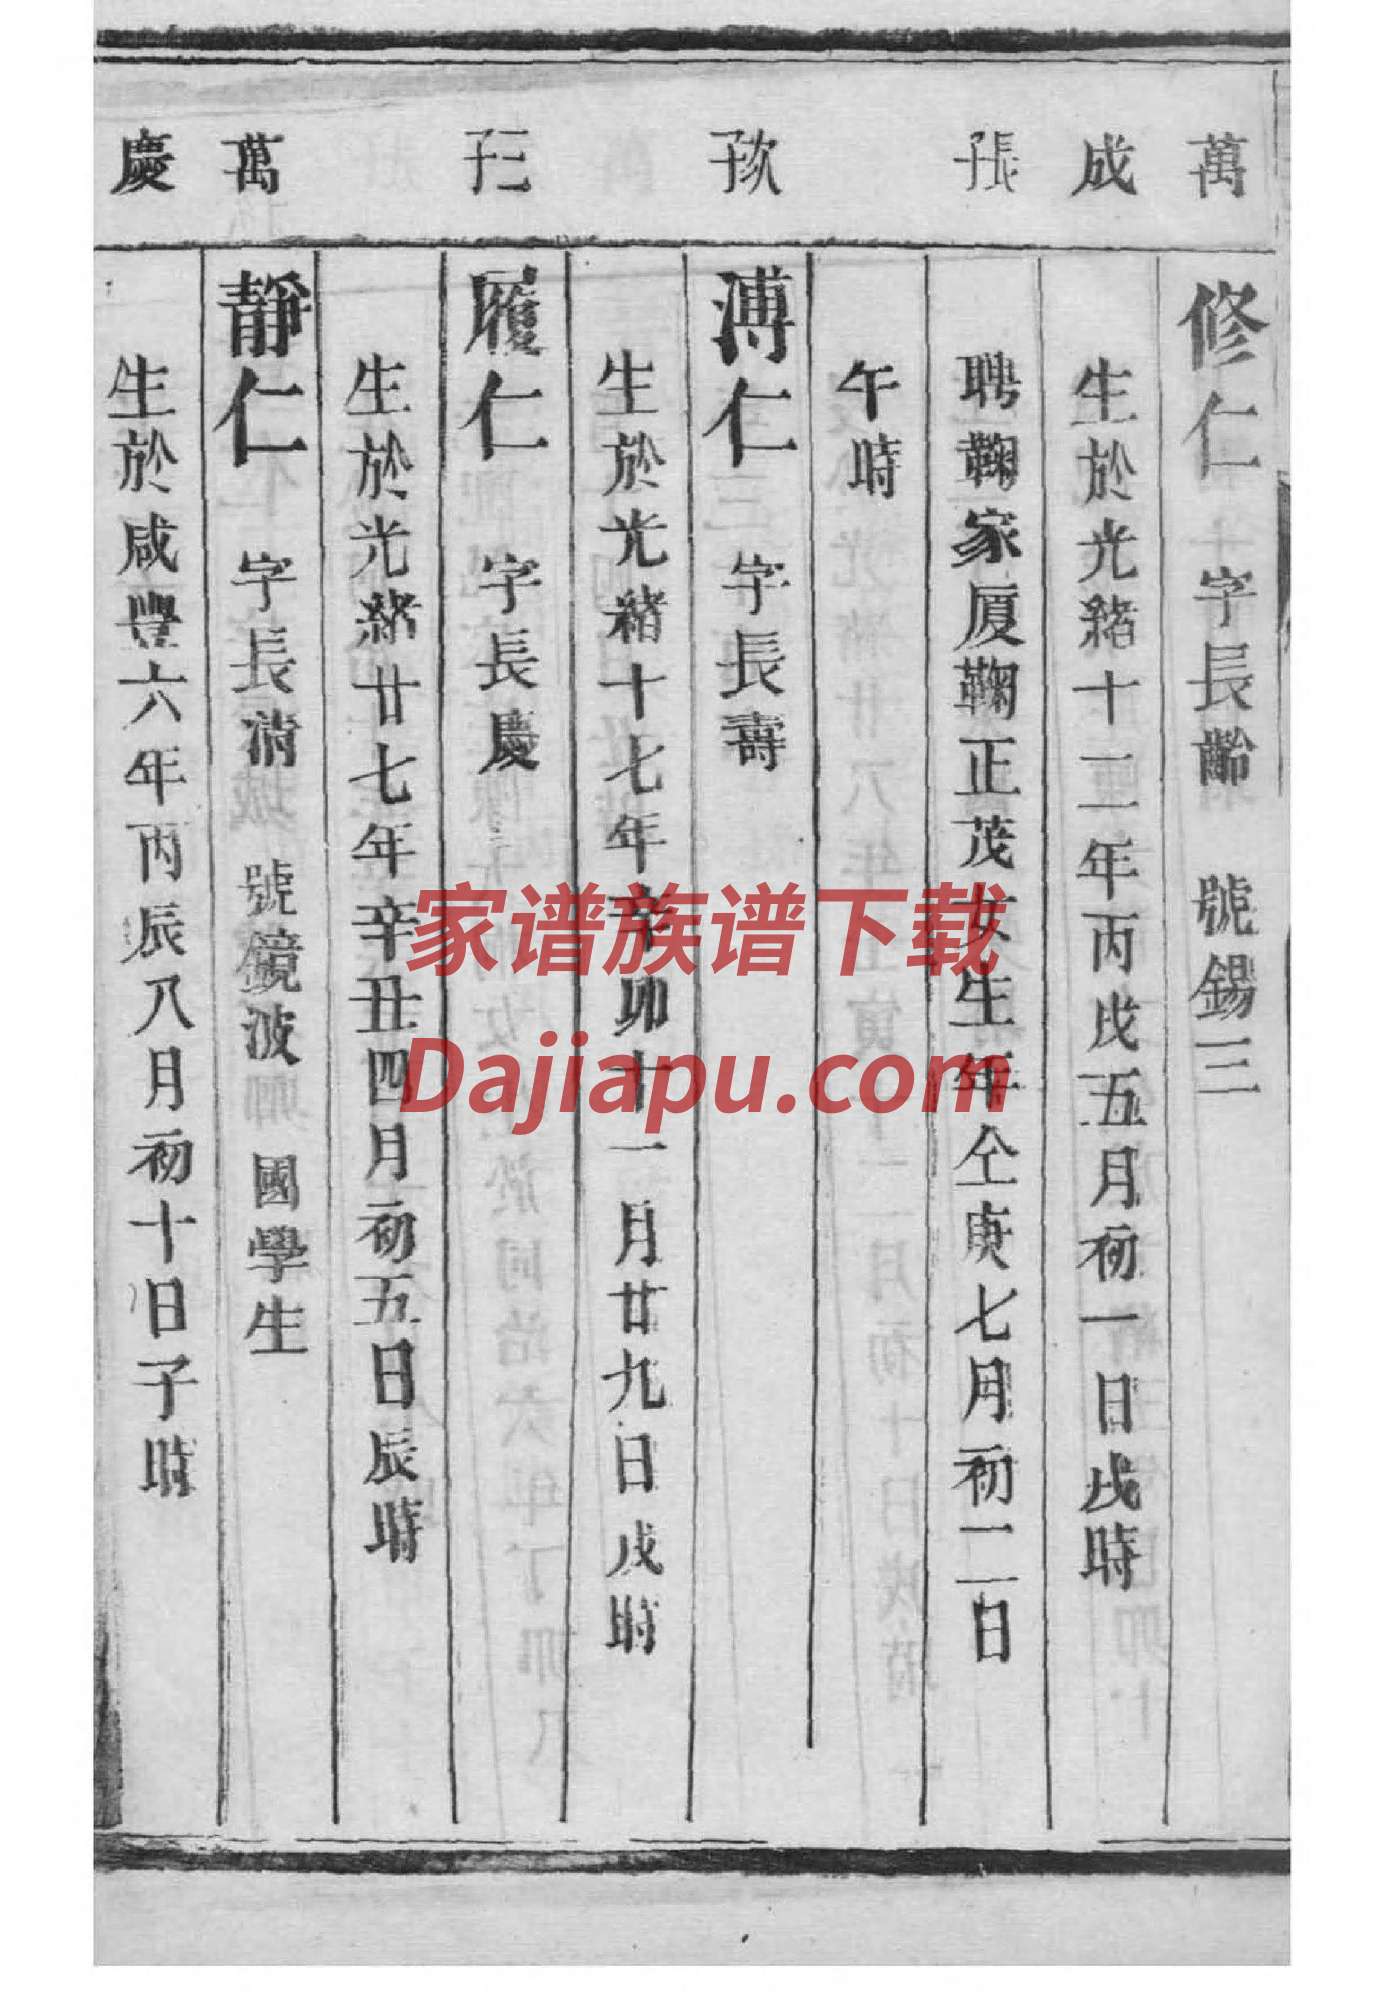 萬成
長子
次子
三子
萬慶
修仁 字長齡 號錫三
生於光緒十二年丙戌五月初一日戌時
聘鞠家厦鞠正茂女生年仝庚七月初二日
午時
溥仁 字長壽
生於光緒十七年辛卯十一月廿九日戌時
履仁 字長慶
生於光緒廿七年辛丑四月初五日辰時
靜仁 字長清 號鏡波 國學生
生於咸豐六年丙辰八月初十日子時
家谱族谱下载
Dajiapu.com